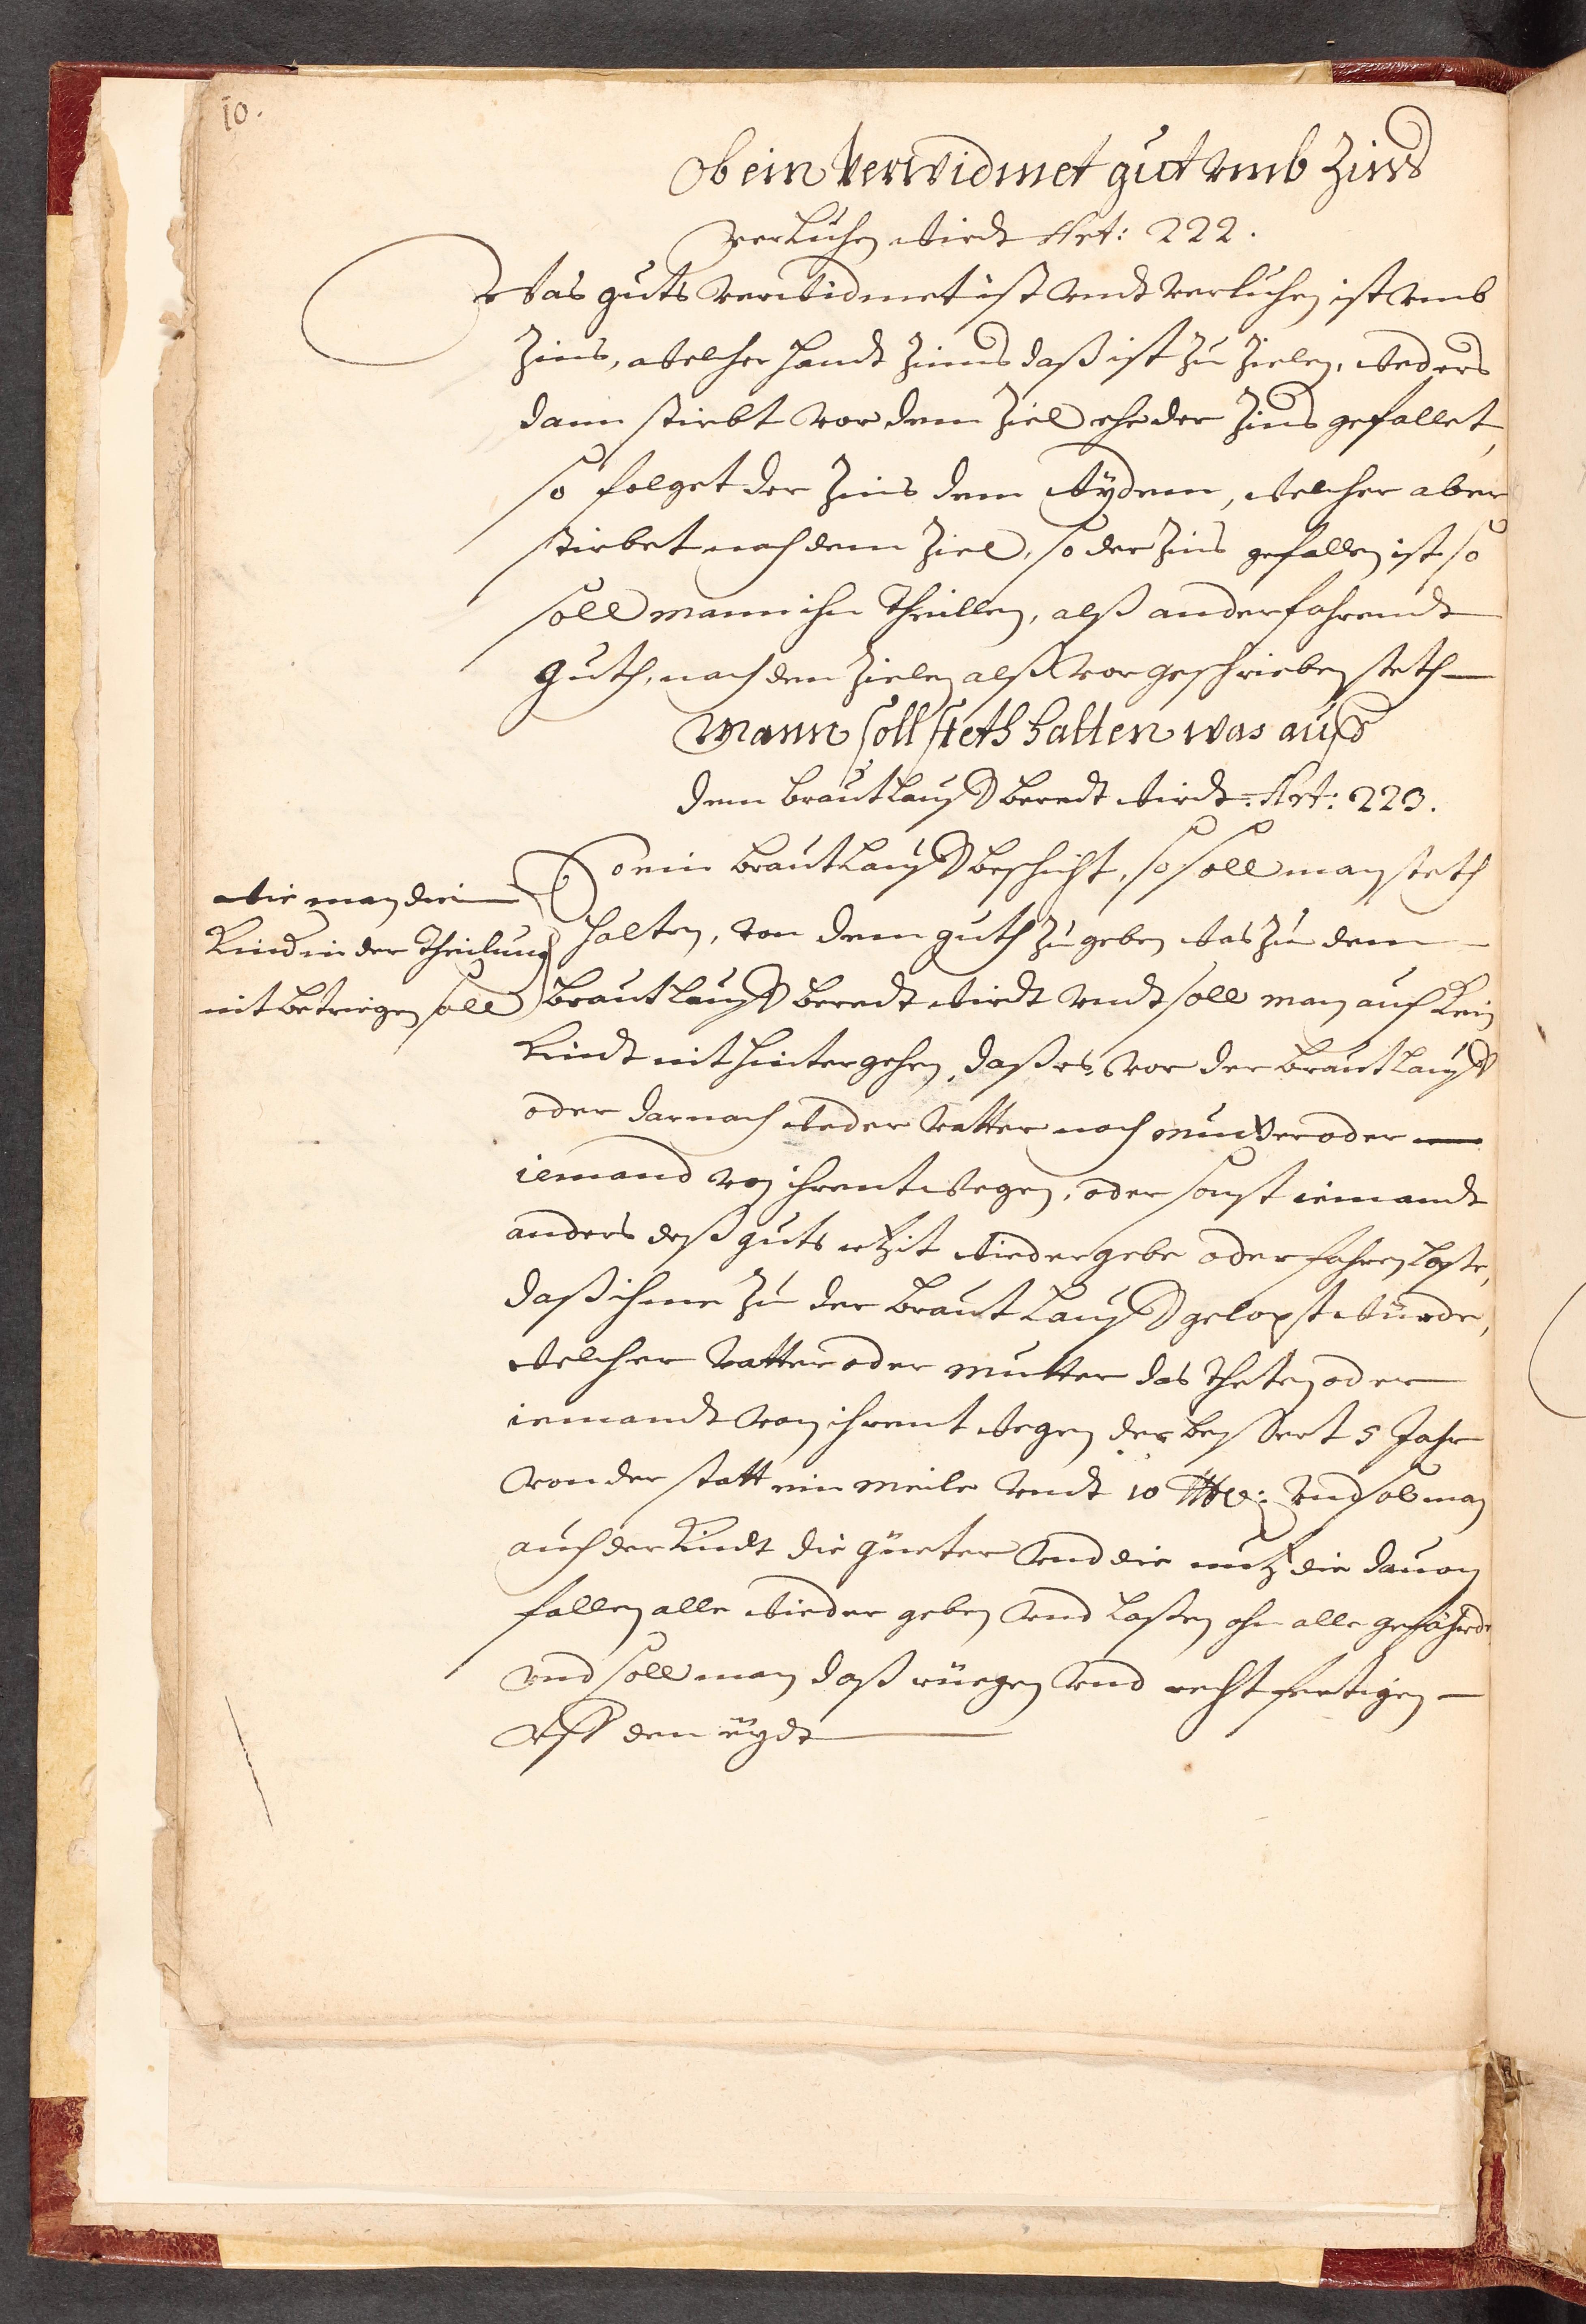 10.
Ob ein verwidmet gut vmb Zins
verluhen wirdt Art: 222.
Was guts verwidmet ist vndt verluhen ist vmb
Zins, welcher handt Zinns daß ist zu Zielen, weders
dann stirbt vor dem Ziel ehe der Zins gefallet,
so folget der Zins dem wydem, welcher aber
stirbet nach dem Ziel, so der Zins gefallen ist so
soll mann ihn theillen, alß ander fahrendt
guth, nach den Zielen alß vorgeschrieben steth
Mann soll steth halten was auff
dem brautlauff beredt wirdt. Art: 223.
So ein brautlauff beschicht, so soll man steth
halten, von dem guth zu geben was zu dem
brautlauff beredt wirdt vndt soll man auch kein
kindt nit hintergehen, daß es vor der brautlauff
oder darnach weder vatter noch mutter oder
iemand von ihrentwegen, oder sonst iemandt
anders deß guts utzit wiedergebe oder fahren laße,
daß ihme zu der brautlauff gelopst würde,
welcher vatter oder mutter das theten oder
iemandt von ihrent wegen der bessert 5 Jahr
von der statt ein meile vndt 10 ℔ und sol man
auch der kindt die güeter vnd die nutz die dauon
fallen alle wieder geben vnd laßen ohn alle gefährde
vnd soll man daß rüegen vnd rechtfertigen
vff den eydt
wie man die
kind in der theilung
nit betriegen soll